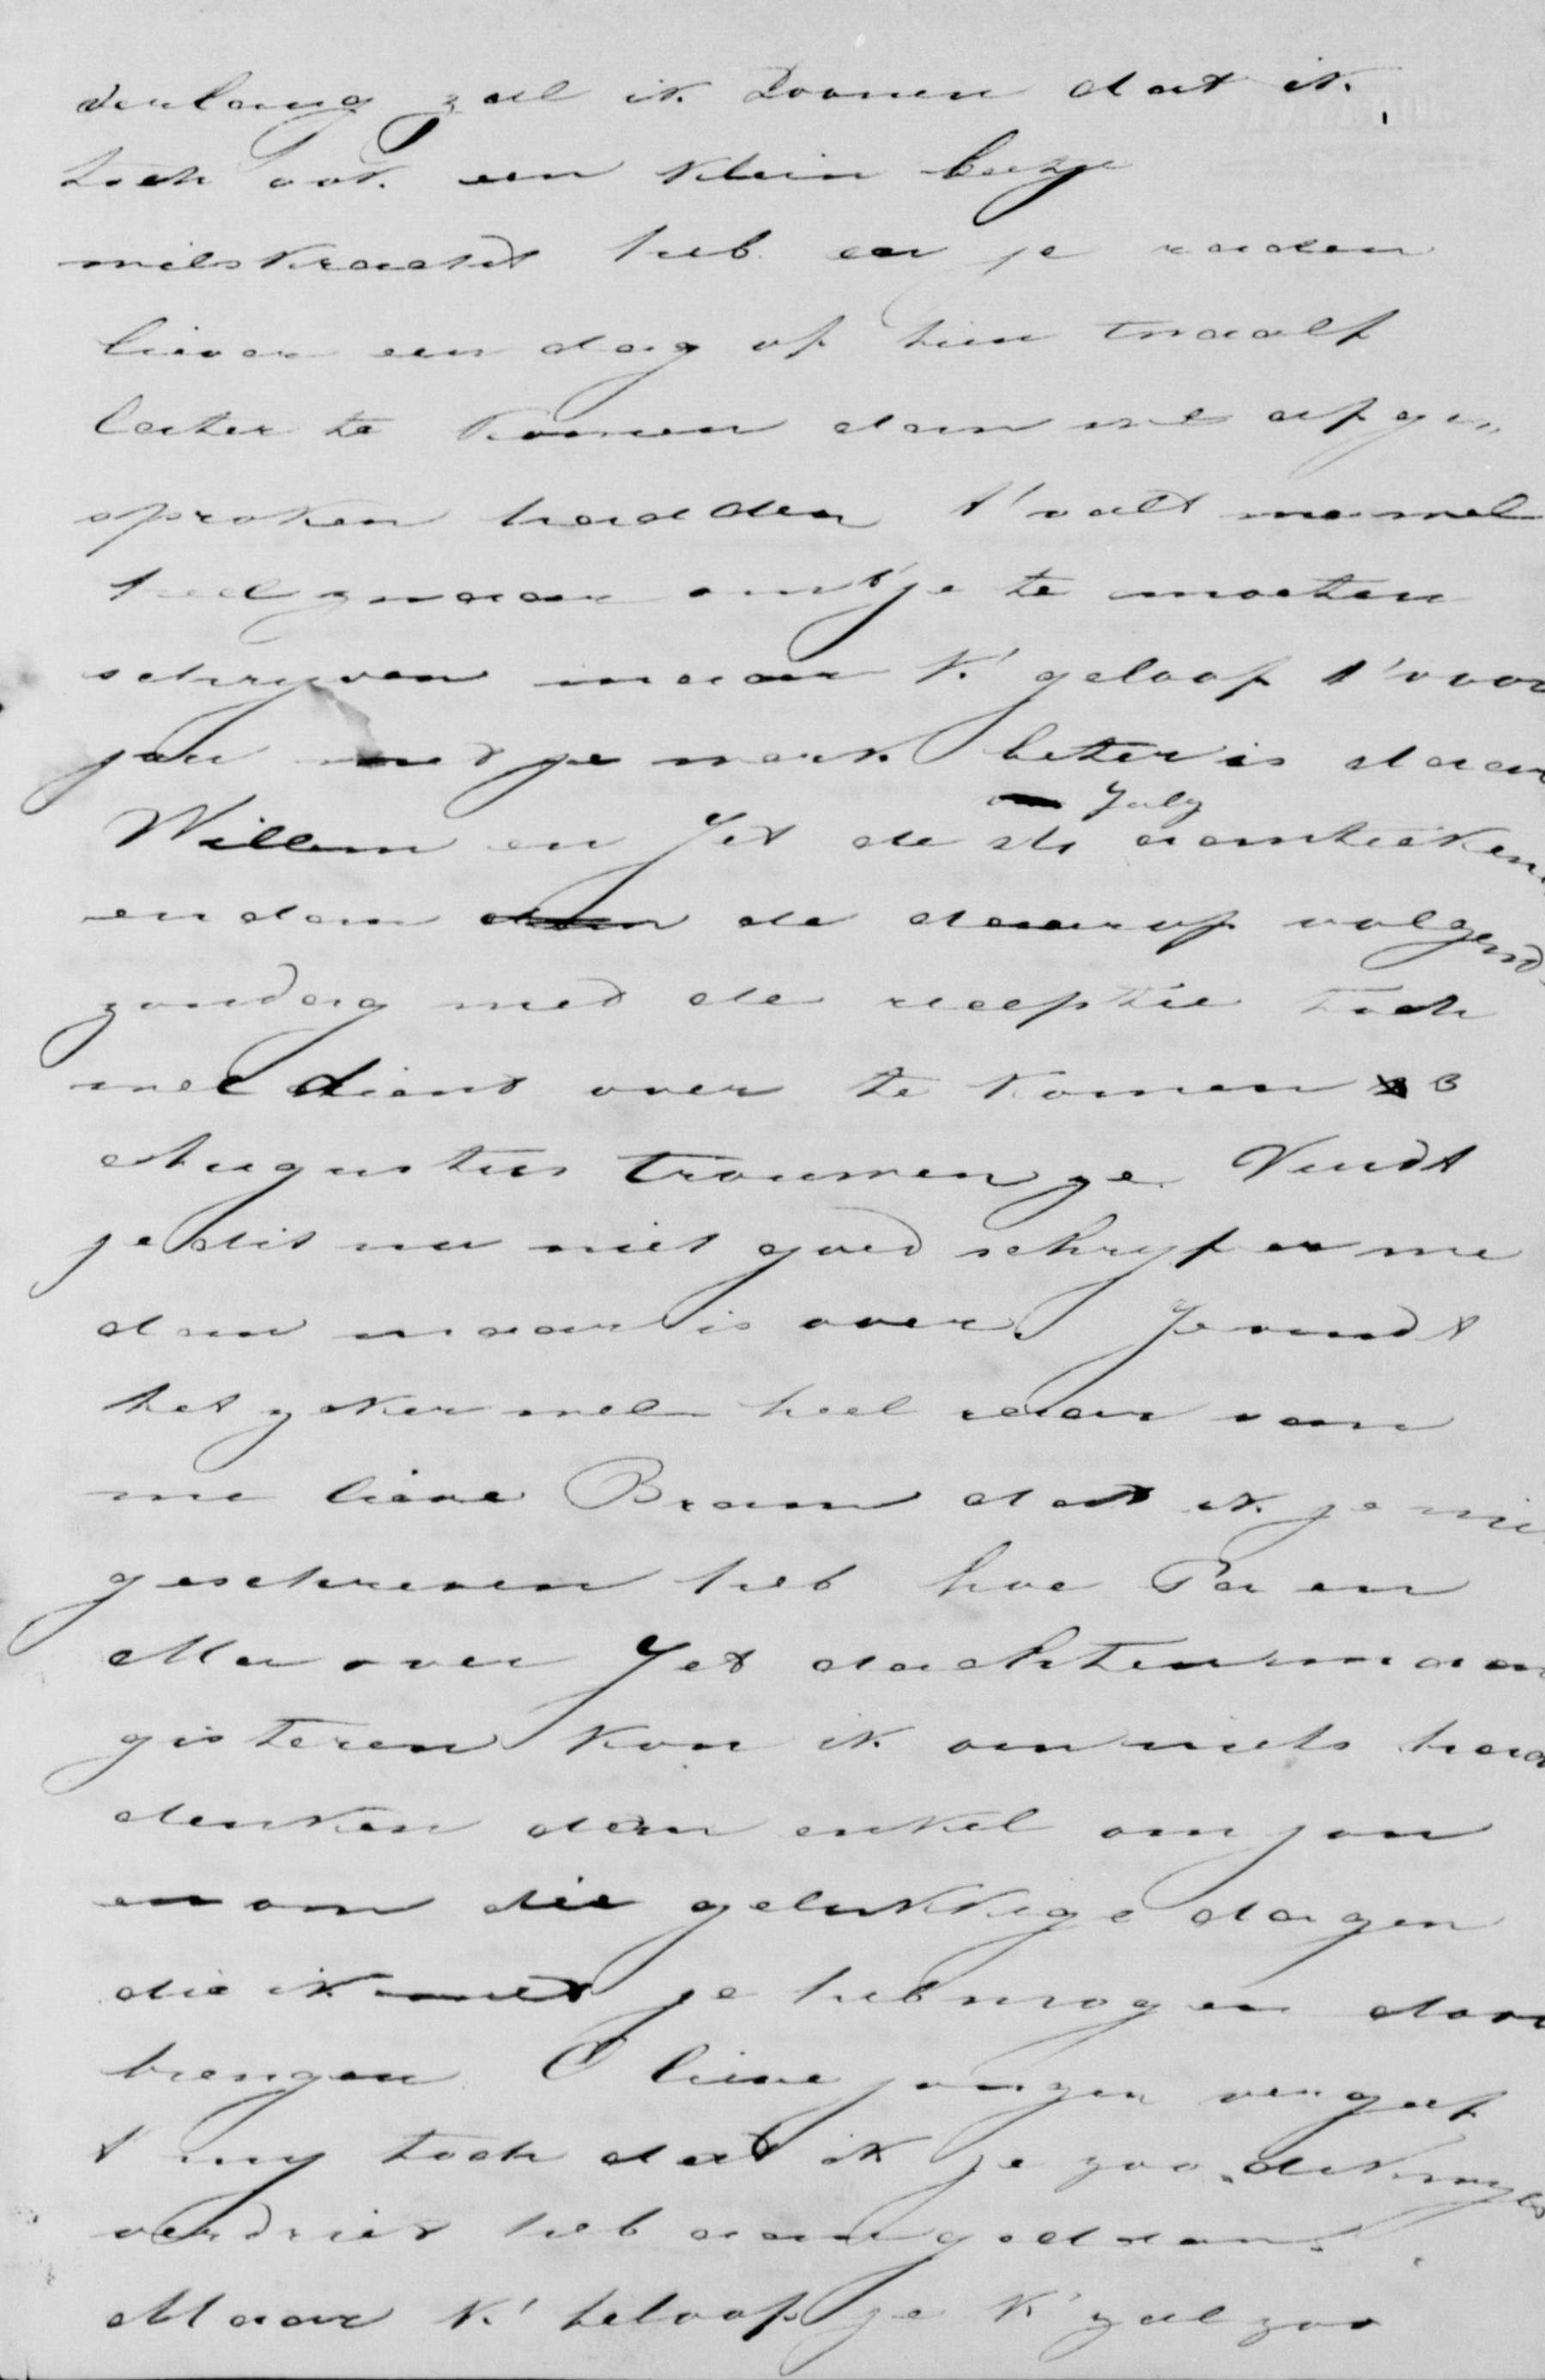 verlang zal ik toonen dat ik
toch ook een klein beetje
wilskracht heb en je raaden
liever een dag of tien twaalf
later te komen dan we afge„
sproken hadden t'valt me wel
heel zwaar om 't je te moeten
schryven maar k' geloof t'voor
jou met je werk beter is daar
Willem en Jet de July aanteeken
en dan de daarop volgend
zondag met de receptie toch
wel dient over te komen 3
Augustus trouwen ze. Vindt
je dit nu niet goed schryf er me
dan maar is over. Je vindt
het zeker wel heel raar van
me lieve Bram dat ik je nie
geschreven heb hoe Pa en
Ma over Jet dachten maar
gisteren kon ik om niets haa
denken dan enkel om jou
en om die gelukkige dagen
die ik met je heb mogen door
brengen. O lieve jongen vergeef
t my toch dat ik je zoo dikwyls
verdriet heb aangedaan.
Maar k' beloof je k' zal zoo